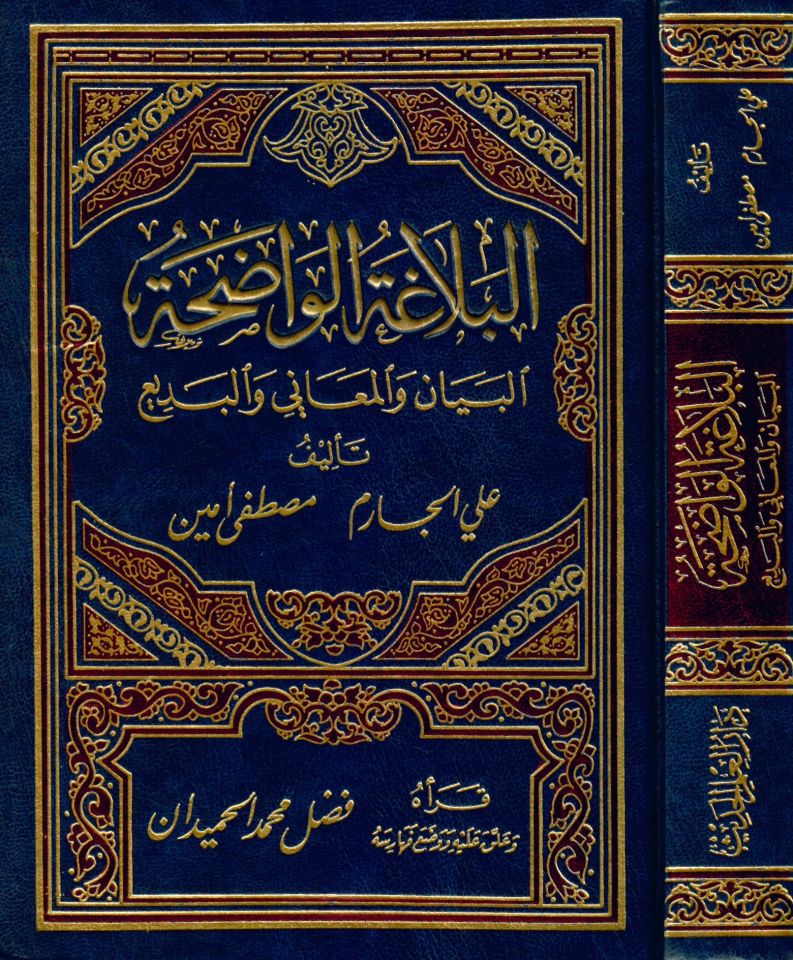 البَلَاغَةُ الوَاضِحَةُ
البَيَان وَالمَعَاني وَالبَديع
تَأليفُ
علي الجارم مصطفى أمين
قَرَأهُ
وَعَلّقَ عَلَيْهِ وَوَضَعَ فَهَارِسَهُ
فضل محمد الحميدان
تَأليفُ
علي الجارم مصطفى أمين
البَلَاغَةُ الوَاضِحَةُ
البَيَان وَالمَعَاني وَالبَديع